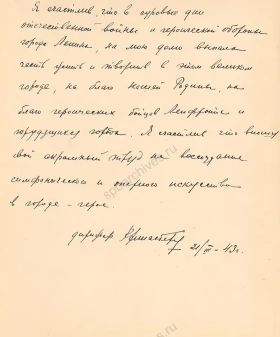 Я счастлив, что в суровые дни
отечественной войны и героической обороны
города Ленина, на мою долю выпала
честь жить и творить в этом великом
городе, на благо нашей Родины, на
благо героических бойцов Ленфронта и
трудящихся города. Я счастлив что вношу
свой скромный труд на воссоздание
симфонического и оперного искусства
в городе-герое.
дирижер
21/III-43г.
spbarchives.ru